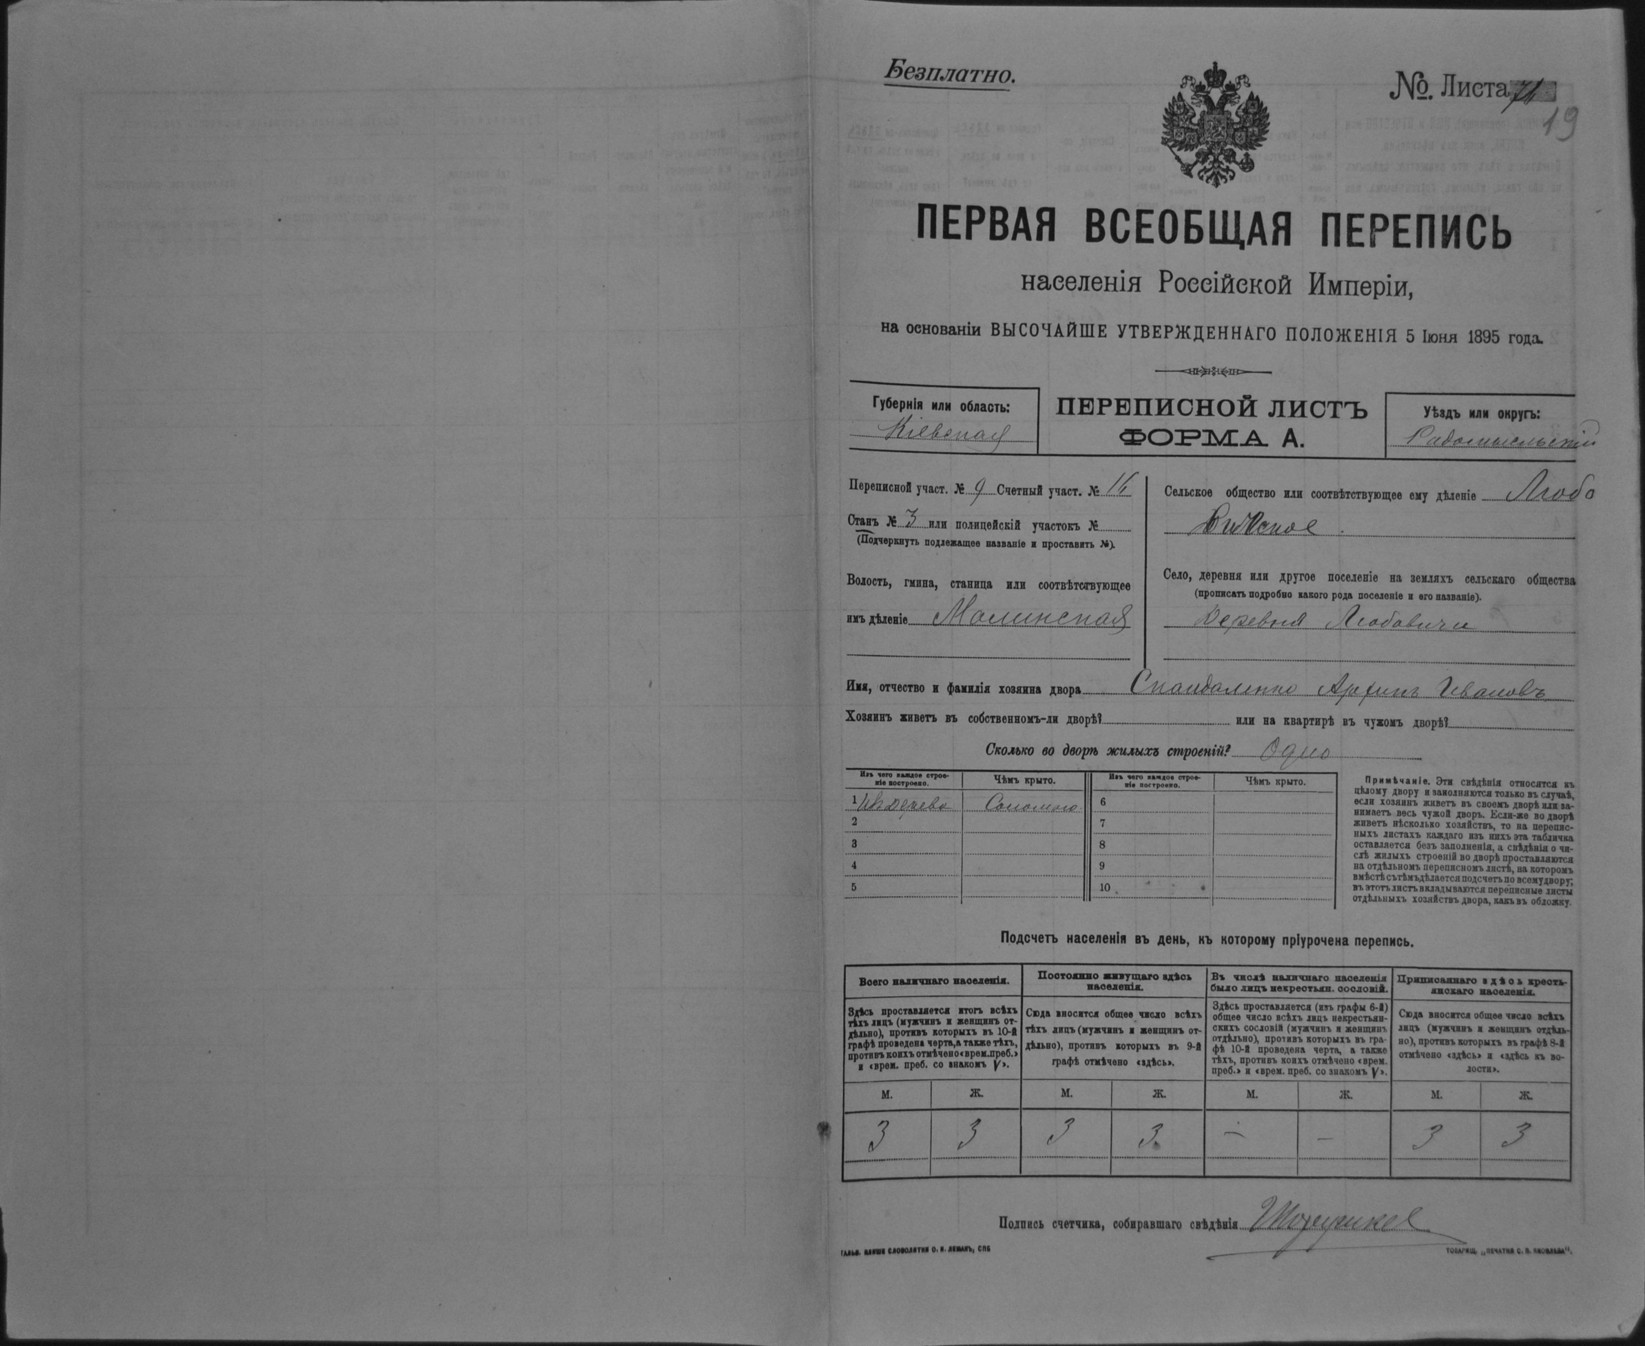 Безплатно.
№ Листа
19
ПЕРВАЯ ВСЕОБЩАЯ ПЕРЕПИСЬ
населенія Россійской Имперіи,
на основаніи ВЫСОЧАЙШЕ УТВЕРЖДЕННАГО ПОЛОЖЕНІЯ 5 Іюня 1895 года.
Губернія или область:
Кіевская
ПЕРЕПИСНОЙ ЛИСТЪ
ФОРМА А.
Уѣздъ или округъ:
Радомысльскій
Переписной участ. № 9 Счетный участ. № 14
Станъ № 3 или полицейскій участокъ №
(Подчеркнуть подлежащее названіе и проставить №).
Волость, гмина, станица или соотвѣтствующее
имъ дѣленіе Малинская
Сельское общество или соотвѣтствующее ему дѣленіе Любо
вичское.
Село, деревня или другое поселеніе на земляхъ сельскаго общества
(прописать подробно какого рода поселеніе и его названіе).
Деревня Любовичи
Имя, отчество и фамилія хозяина двора Скандаленко Архипъ Ивановъ
Хозяинъ живетъ въ собственномъ-ли дворѣ? или на квартирѣ въ чужомъ дворѣ?
Сколько во дворѣ жилыхъ строеній? Одно
Изъ чего каждое строе-
ніе построено.
Чѣмъ крыто.
Изъ чего каждое строе-
ніе построено.
Чѣмъ крыто.
1 Изъ дерева Соломою
2
3
4
5
6
7
8
9
10
Примѣчаніе. Эти свѣдѣнія относятся къ
цѣлому двору и заполняются только въ случаѣ,
если хозяинъ живетъ въ своемъ дворѣ или за-
нимаетъ весь чужой дворъ. Если-же во дворѣ
живетъ нѣсколько хозяйствъ, то на перепис-
ныхъ листахъ каждаго изъ нихъ эта табличка
оставляется безъ заполненія, а свѣдѣнія о чи-
слѣ жилыхъ строеній во дворѣ проставляются
на отдѣльномъ переписномъ листѣ, на которомъ
вмѣстѣ съ тѣмъ дѣлается подсчетъ по всему двору;
въ этотъ листъ вкладываются переписные листы
отдѣльныхъ хозяйствъ двора, какъ въ обложку.
Подсчетъ населенія въ день, къ которому пріурочена перепись.
Всего наличнаго населенія.
Здѣсь проставляется итогъ всѣхъ
тѣхъ лицъ (мужчинъ и женщинъ от-
дѣльно), противъ которыхъ въ 10-й
графѣ проведена черта, а также тѣхъ,
противъ коихъ отмѣчено «врем. преб.»
и «врем. преб. со знакомъ V».
Постоянно живущаго здѣсь
населенія.
Сюда вносится общее число всѣхъ
тѣхъ лицъ (мужчинъ и женщинъ от-
дѣльно), противъ которыхъ въ 9-й
графѣ отмѣчено «здѣсь».
Въ числѣ наличнаго населенія
было лицъ некрестьян. сословій.
Здѣсь проставляется (изъ графы 6-й)
общее число всѣхъ лицъ некрестьян-
скихъ сословій (мужчинъ и женщинъ
отдѣльно), противъ которыхъ въ гра-
фѣ 10-й проведена черта, а также
тѣхъ, противъ коихъ отмѣчено «врем.
преб.» и «врем. преб. со знакомъ V».
Приписаннаго здѣсь кресть-
янскаго населенія.
Сюда вносится общее число всѣхъ
лицъ (мужчинъ и женщинъ отдѣль-
но), противъ которыхъ въ графѣ 8-й
отмѣчено «здѣсь» и «здѣсь къ во-
лости».
М. Ж. М. Ж. М. Ж. М. Ж.
3 3 3 3 – – 3 3
Подпись счетчика, собиравшаго свѣдѣнія
ГАЛЬВ. КЛИШЕ СЛОВОЛИТНИ О. И. ЛЕМАНЪ, СПБ
ТОВАРИЩ. „ПЕЧАТНЯ С. П. ЯКОВЛЕВА".